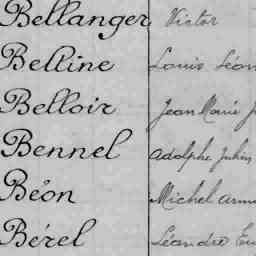 Bellanger Victor
Belline Louis Léon
Belloir Jean Marie
Bennel Adolphe Julien
Béon Michel
Bérel Léandre